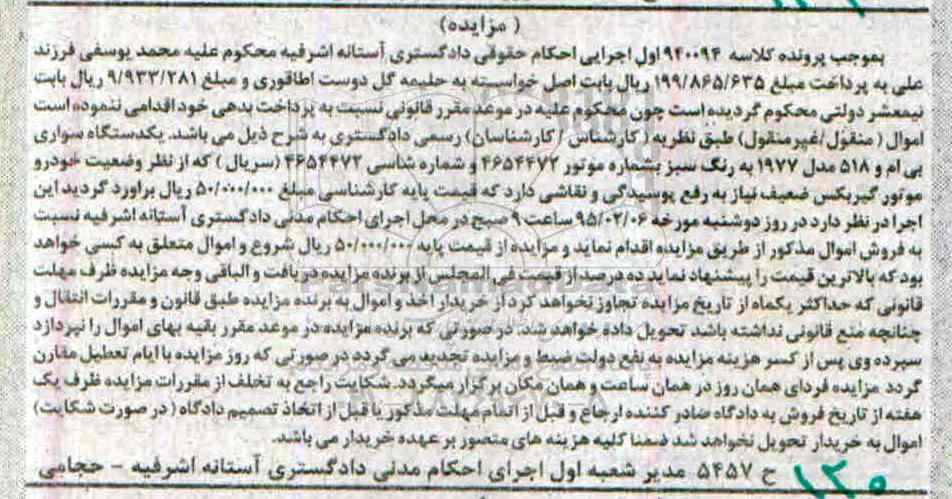 (مزایده)
بموجب پرونده کلاسه ۹۴۰۰۹۴ اول اجرایی احکام حقوقی دادگستری آستانه اشرفیه محکوم علیه محمد یوسفی فرزند
علی به پرداخت مبلغ ۱۹۹/۸۶۵/۶۳۵ ریال بابت اصل خواسته به حلیمه گل دوست اطاقوری و مبلغ ۹/۹۳۳/۲۸۱ ریال بابت
نیمعشر دولتی محکوم گردیده است چون محکوم علیه در موعد مقرر قانونی نسبت به پرداخت بدهی خود اقدامی ننموده است
اموال (منقول/غیرمنقول) طبق نظریه (کارشناس / کارشناسان) رسمی دادگستری به شرح ذیل می باشد. یکدستگاه سواری
بی ام و ۵۱۸ مدل ۱۹۷۷ به رنگ سبز بشماره موتور ۴۶۵۴۴۷۲ و شماره شاسی ۴۶۵۴۴۷۲ (سریال) که از نظر وضعیت خودرو
موتور گیربکس ضعیف نیاز به رفع پوسیدگی و نقاشی دارد که قیمت پایه کارشناسی مبلغ ۵۰/۰۰۰/۰۰۰ ریال براورد گردید این
اجرا در نظر دارد در روز دوشنبه مورخه ۹۵/۰۲/۰۶ ساعت ۹ صبح در محل اجرای احکام مدنی دادگستری آستانه اشرفیه نسبت
به فروش اموال مذکور از طریق مزایده اقدام نماید و مزایده از قیمت پایه ۵۰/۰۰۰/۰۰۰ ریال شروع و اموال متعلق به کسی خواهد
بود که بالاترین قیمت را پیشنهاد نماید ده درصد از قیمت فی المجلس از برنده مزایده دریافت و الباقی وجه مزایده ظرف مهلت
قانونی که حداکثر یکماه از تاریخ مزایده تجاوز نخواهد کرد از خریدار اخذ و اموال به برنده مزایده طبق قانون و مقررات انتقال و
چنانچه منع قانونی نداشته باشد تحویل داده خواهد شد. در صورتی که برنده مزایده در موعد مقرر بقیه بهای اموال را نپردازد
سپرده وی پس از کسر هزینه مزایده به نفع دولت ضبط و مزایده تجدید می گردد در صورتی که روز مزایده با ایام تعطیل مقارن
گردد مزایده فردای همان روز در همان ساعت و همان مکان برگزار میگردد. شکایت راجع به تخلف از مقررات مزایده ظرف یک
هفته از تاریخ فروش به دادگاه صادر کننده ارجاع و قبل از اتمام مهلت مذکور یا قبل از اتخاذ تصمیم دادگاه (در صورت شکایت)
اموال به خریدار تحویل نخواهد شد ضمنا کلیه هزینه های متصور بر عهده خریدار می باشد.
ح ۵۴۵۷ مدیر شعبه اول اجرای احکام مدنی دادگستری آستانه اشرفیه - حجامی
۱۳۵
ParsNamadData